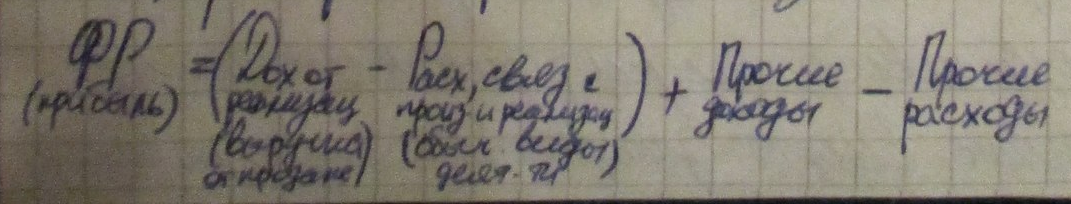 ФР = (Дох от - Расх, связ с ) + Прочие - Прочие
(прибыль) реализац произ и реализац доходы расходы
(выручка (обыч. виды
от продаж) деят-ти)